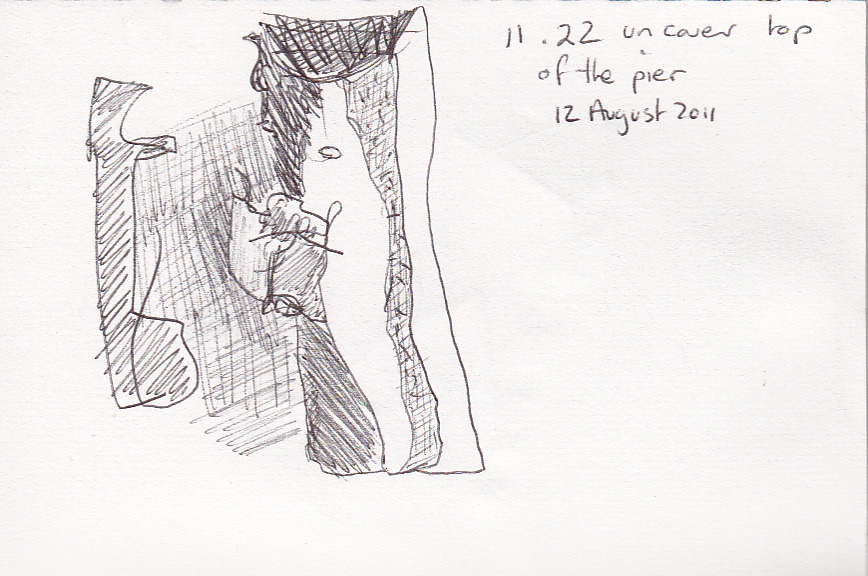 11.22 uncover top
of the pier
12 August 2011